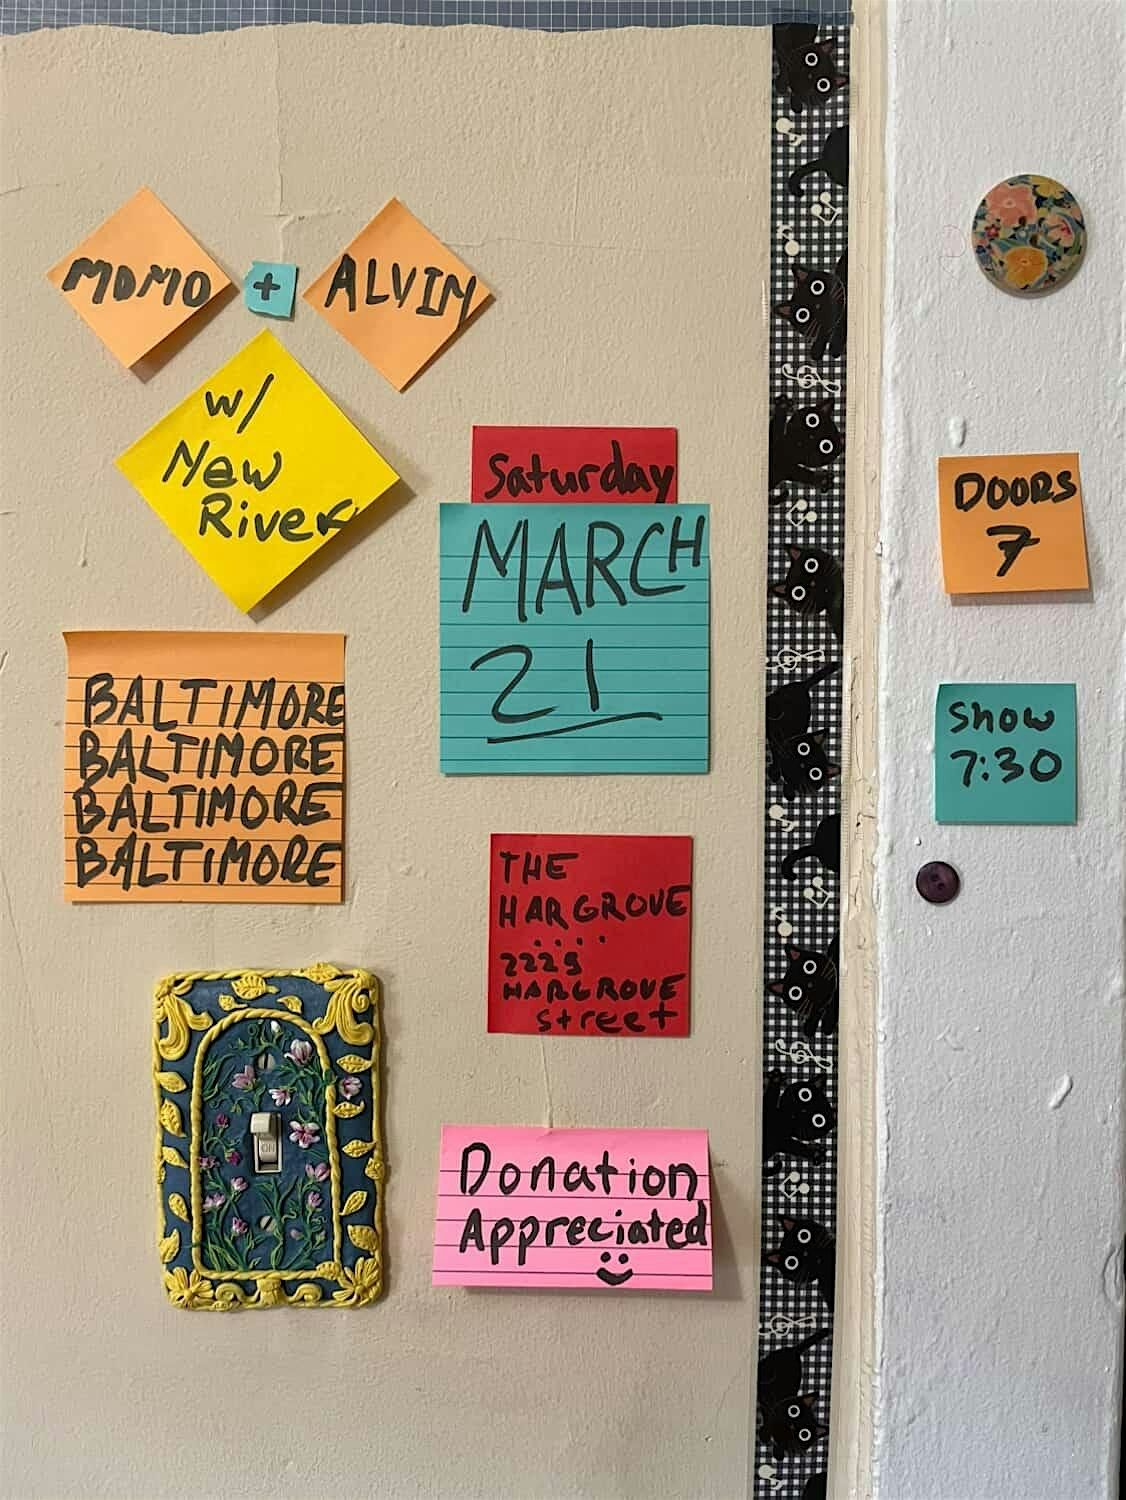 MOMO + ALVIN
w/
New
River
Saturday
MARCH
21
BALTIMORE
BALTIMORE
BALTIMORE
BALTIMORE
THE
HARGROVE
....
2229
HARGROVE
Street
Donation
Appreciated
DOORS
7
Show
7:30
ON